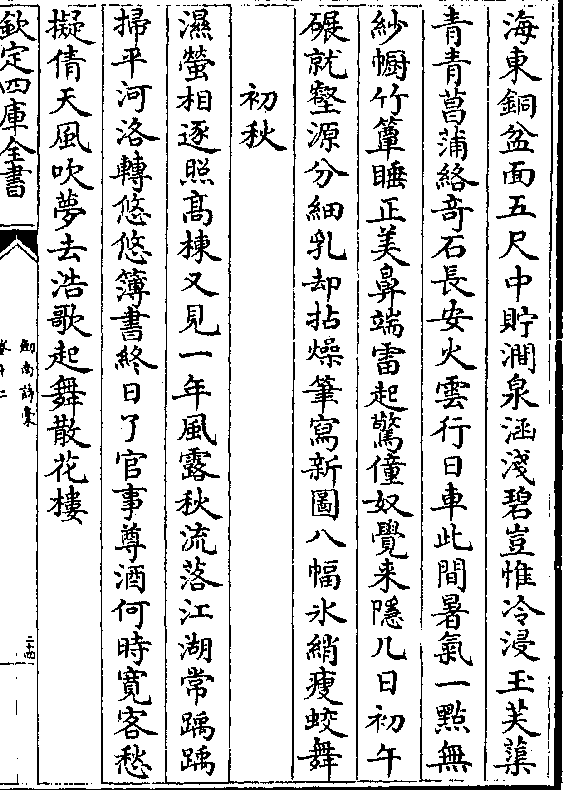 海東銅盆面五尺中貯澗泉涵淺碧豈惟冷浸玉芙蕖
青青菖蒲絡奇石長安火雲行日車此間暑氣一點無
紗㡡竹簟睡正美鼻端雷起驚僮奴覺来隱几日初午
碾就壑源分細乳却拈燥筆寫新圖八幅氷綃瘦蛟舞
初秋
濕螢相逐照髙棟又見一年風露秋流落江湖常踽踽
掃平河洛轉悠悠簿書終日了官事尊酒何時寛客愁
擬倩天風吹夢去浩歌起舞散花樓
欽定四庫全書
劍南詩稾
卷十二
二十四